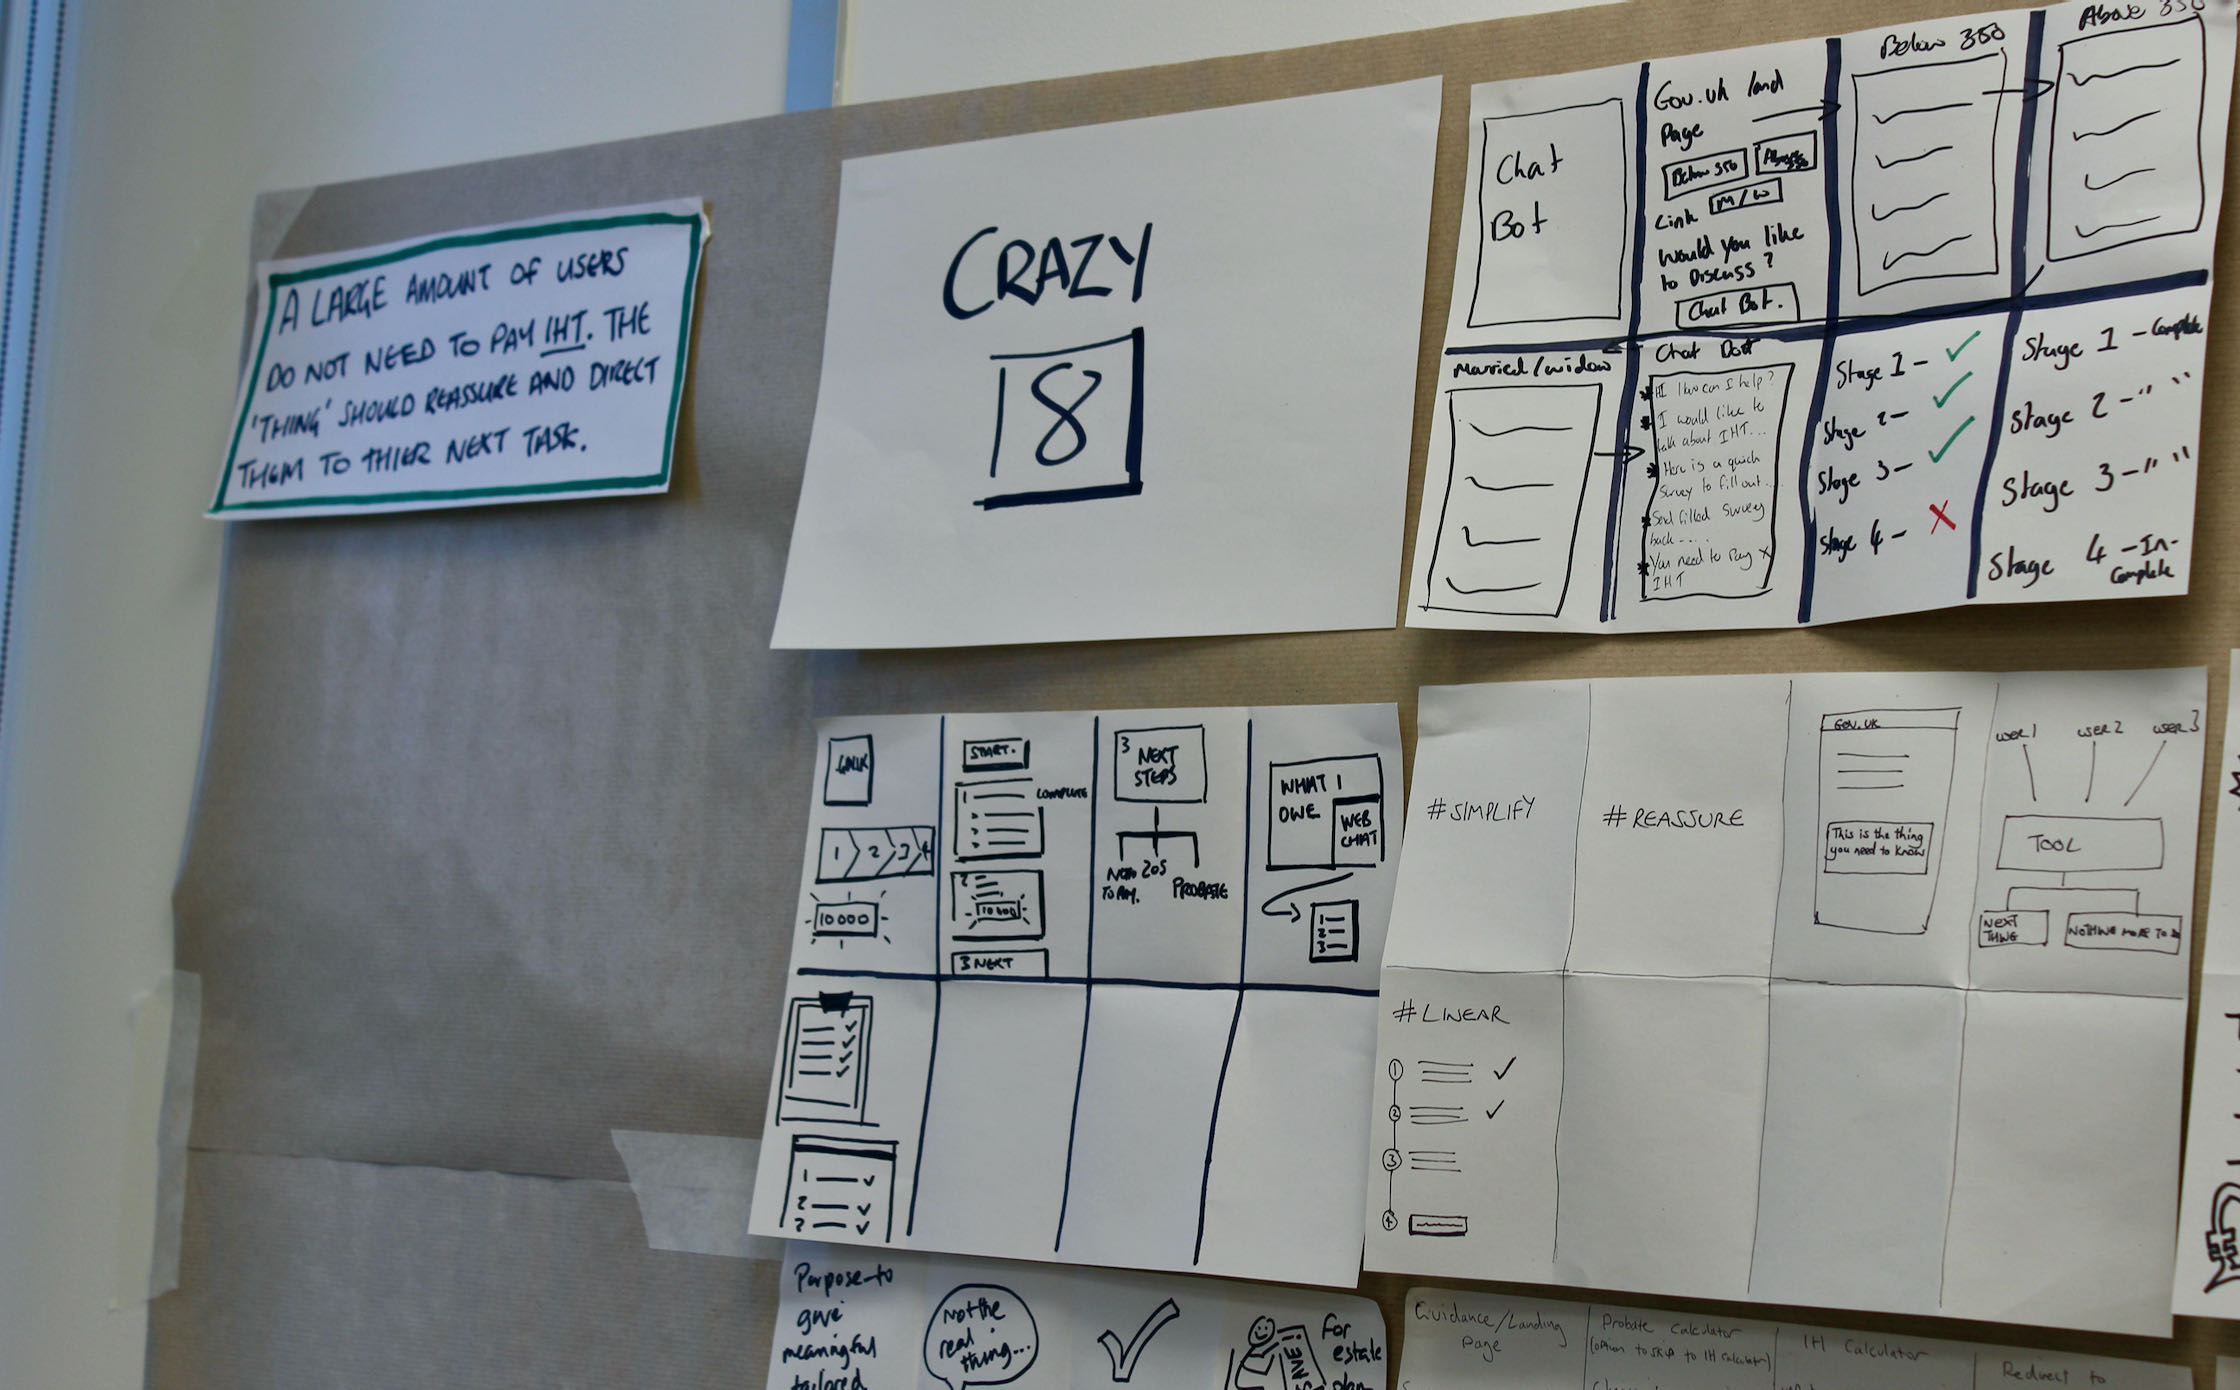 A LARGE AMOUNT OF USERS
DO NOT NEED TO PAY IHT. THE
'THING' SHOULD REASSURE AND DIRECT
THEM TO THIER NEXT TASK.
CRAZY
8
Chat
Bot
Gov.uk land
Page
Below 350
Above 350
M/W
Link
Would you like
to Discuss?
Chat Bot.
Below 350
Above 350
Married/widow
Chat Bot
HI How can I help?
I would like to
talk about IHT...
Here is a quick
Survey to fill out...
Send filled survey
back....
You need to pay X
IHT
Stage 1 - ✓
Stage 2 - ✓
Stage 3 - ✓
Stage 4 - X
Stage 1 - Complete
Stage 2 - " "
Stage 3 - " "
Stage 4 - In-
Complete
1 2 3 4
10000
START.
1
COMPLETE
2
10000
3 NEXT
3 NEXT
STEPS
205
PROBATE
WHAT I
OWE
WEB
CHAT
1
2
3
1
2
2
#SIMPLIFY
#REASSURE
GOV.UK
This is the thing
you need to know
USER 1 USER 2 USER 3
TOOL
NEXT
THING
NOTHING MORE TO DO
#LINEAR
1
2
3
4
Purpose to
give
meaningful
tailored
not the
real
thing...
for
estate
Guidance/Landing
page
Probate Calculator
(option to skip to IH calculator)
IH Calculator
Redirect to